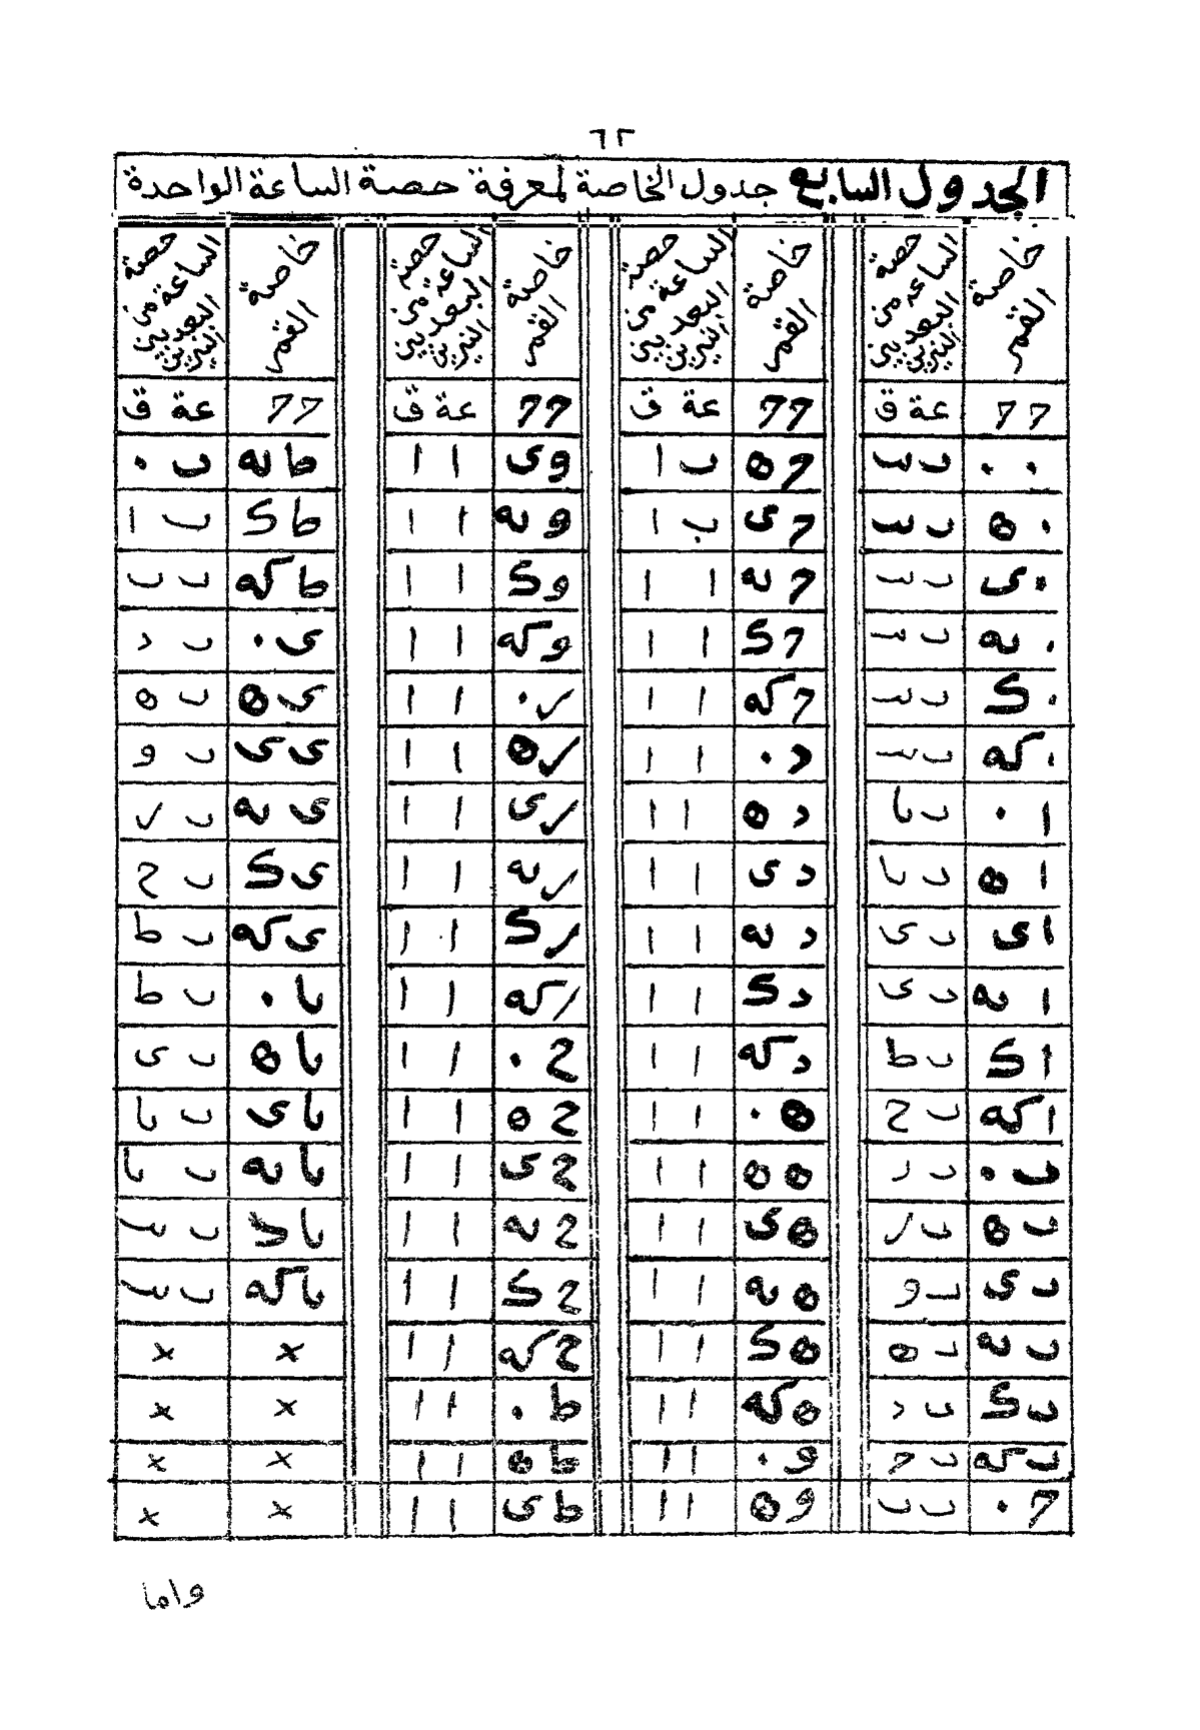 ٦٢
الجدول السابع جدول الخاصة لمعرفة حصة الساعة الواحدة
خاصة القمر | حصة الساعة من البعد بين النيرين | خاصة القمر | حصة الساعة من البعد بين النيرين | خاصة القمر | حصة الساعة من البعد بين النيرين | خاصة القمر | حصة الساعة من البعد بين النيرين
ح ح | عة ق | ح ح | عة ق | ح ح | عة ق | ح ح | عة ق
٠ ٠ | ب يب | ح ه | ب ا | و ى | ا ا | ط يه | ب ٠
٠ ه | ب يب | ح ى | ب ا | و يه | ا ا | ط ك | ب ا
٠ ى | ب يب | ح يه | ا ا | و ك | ا ا | ط كه | ب ب
٠ يه | ب يب | ح ك | ا ا | و كه | ا ا | ى ٠ | ب د
٠ ك | ب يب | ح كه | ا ا | ر ٠ | ا ا | ى ه | ب ه
٠ كه | ب يب | د ٠ | ا ا | ر ه | ا ا | ى ى | ب و
ا ٠ | ب يا | د ه | ا ا | ر ى | ا ا | ى يه | ب ر
ا ه | ب يا | د ى | ا ا | ر يه | ا ا | ى ك | ب ح
ا ى | ب ى | د يه | ا ا | ر ك | ا ا | ى كه | ب ط
ا يه | ب ى | د ك | ا ا | ر كه | ا ا | يا ٠ | ب ط
ا ك | ب ط | د كه | ا ا | ح ٠ | ا ا | يا ه | ب ى
ا كه | ب ح | ه ٠ | ا ا | ح ه | ا ا | يا ى | ب يا
ب ٠ | ب ر | ه ه | ا ا | ح ى | ا ا | يا يه | ب يا
ب ه | ب ر | ه ى | ا ا | ح يه | ا ا | يا ك | ب يب
ب ى | ب و | ه يه | ا ا | ح ك | ا ا | يا كه | ب يب
ب يه | ب ه | ه ك | ا ا | ح كه | ا ا | × | ×
ب ك | ب د | ه كه | ا ا | ط ٠ | ا ا | × | ×
ب كه | ب ح | و ٠ | ا ا | ط ه | ا ا | × | ×
ح ٠ | ب ب | و ه | ا ا | ط ى | ا ا | × | ×
واما